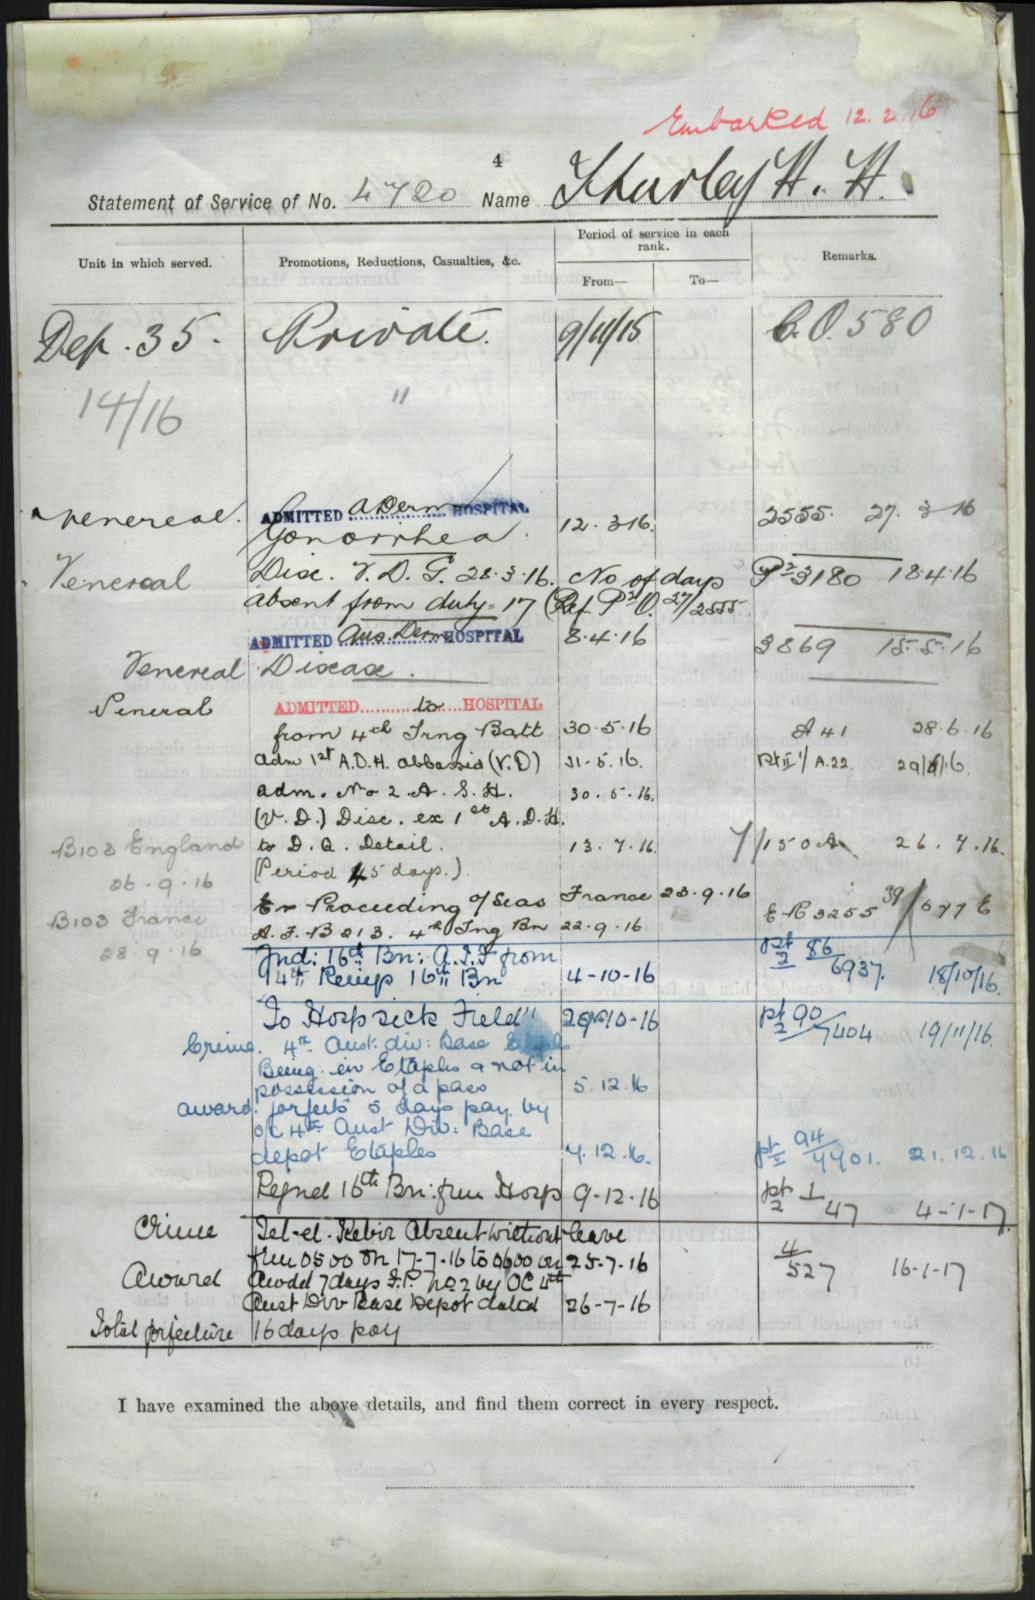 Embarked 12.2.16
4
Statement of Service of No. 4720 Name Shurley H. H.
Unit in which served.
Promotions, Reductions, Casualties, &c.
Period of service in each rank.
From—
To—
Remarks.
Dep. 35. Private. 9/11/15 C.O. 580
14/16 "
Venereal. ADMITTED A Derm HOSPITAL
Gonorrhea. 12.3.16. 2555. 27.3.16
Venereal Disc. V.D.G. 28.3.16. No of days P2 3180 18.4.16
absent from duty = 17 (Ref P2 O. 27/2555
ADMITTED Aus. Derm HOSPITAL 8.4.16 3869 15.5.16
Venereal Disease.
General ADMITTED to HOSPITAL
from 4th Trng Batt 30.5.16 A 41 28.6.16
adm 1st A.D.H. abbassia (V.D) 31.5.16. Pt II 1/A.22. 29/6/16.
adm. No 2 A. S. H. 30.5.16.
(V.D.) Disc. ex 1st A.D.H.
B103 England to D.Q. Detail. 13.7.16. 7/150A 26.7.16.
26.9.16 (Period 45 days.)
B103 France Ex Proceeding O/Seas France 23.9.16 E R 3255 39/677 E
28.9.16 A.F. B 213. 4th Tng Bn 22-9-16
Ind: 16th Bn: A.I.F from pt 2 86/6937. 18/10/16.
14th Reinfs 16th Bn 4-10-16
To Hosp sick "Field" 29-10-16 pt 2 90/7404 19/11/16.
Crime. 4th Aust: div: Base
Being in Etaples & not in
possession of a pass 5.12.16
award. forfeits 5 days pay by
O/C 4th Aust Div: Base
depot Etaples 7.12.16. pt II 94/7701. 21.12.16
Rejnd 16th Bn: from Hosp 9-12-16 pt 2 1/47 4-1-17.
Crime Tel-el-Kebir Absent without leave
from 0500 on 17-7-16 to 0600 on 25-7-16 4/527 16-1-17
Award Awded 7 days F.P. No 2 by OC 4th
Aust Div Base Depot dated 26-7-16
Total forfeiture 16 days pay
I have examined the above details, and find them correct in every respect.